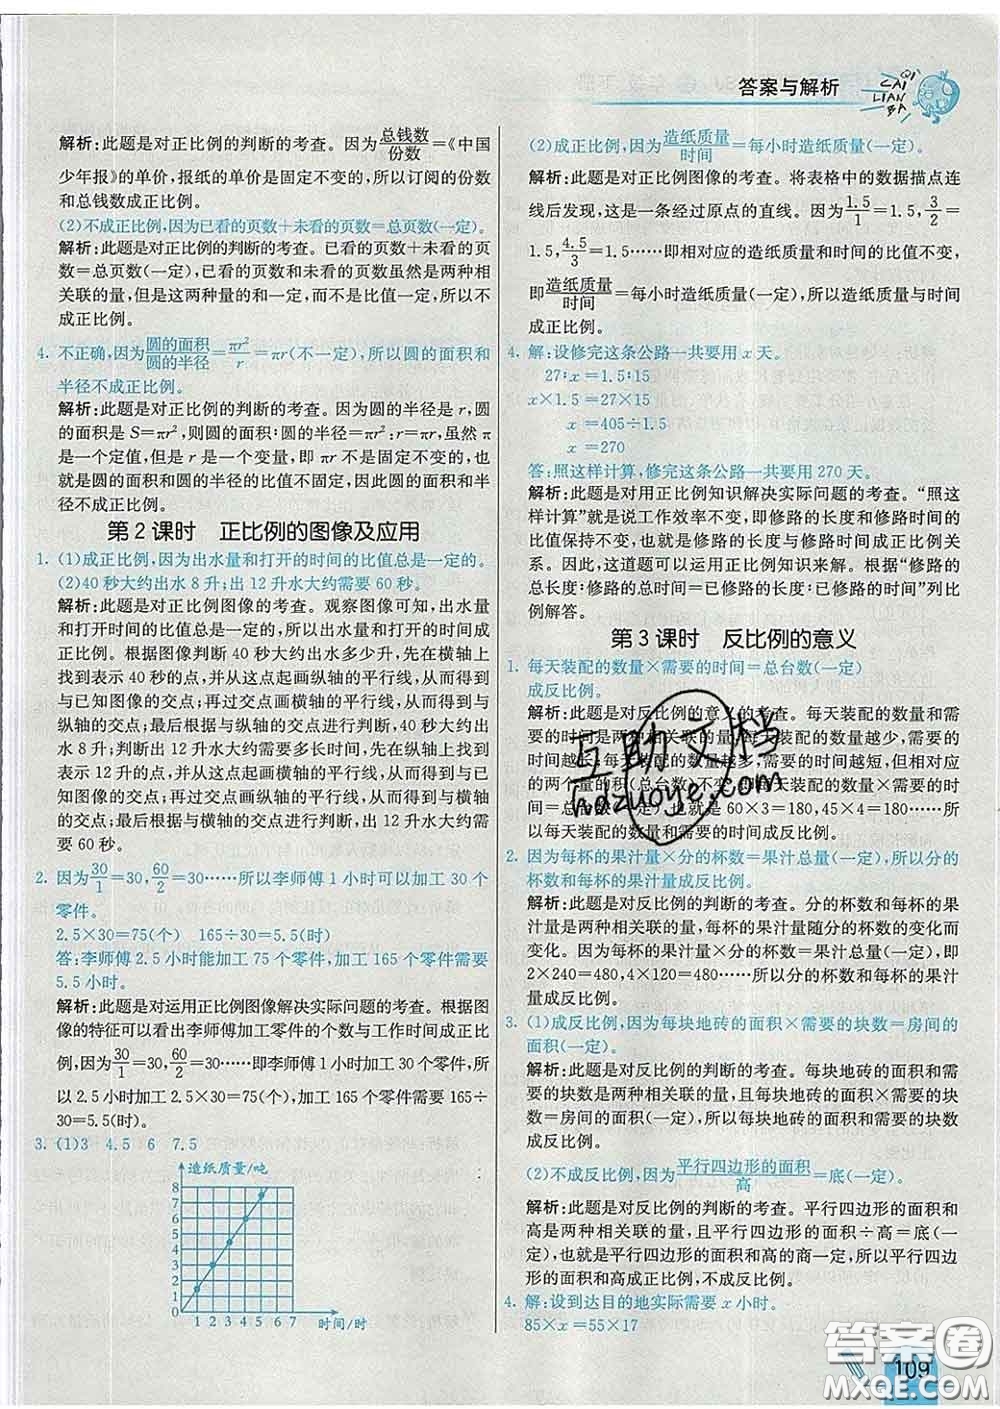 答案与解析
QI
CAI
LIAN
BA
解析:此题是对正比例的判断的考查。因为总钱数/份数=《中国
少年报》的单价,报纸的单价是固定不变的,所以订阅的份数
和总钱数成正比例。
(2)不成正比例,因为已看的页数+未看的页数=总页数(一定)。
解析:此题是对正比例的判断的考查。已看的页数+未看的页
数=总页数(一定),已看的页数和未看的页数虽然是两种相
关联的量,但是这两种量的和一定,而不是比值一定,所以不
成正比例。
4. 不正确,因为圆的面积/圆的半径=πr²/r=πr(不一定),所以圆的面积和
半径不成正比例。
解析:此题是对正比例的判断的考查。因为圆的半径是r,圆
的面积是S=πr²,则圆的面积:圆的半径=πr²:r=πr,虽然π
是一个定值,但是r是一个变量,即πr不是一个固定的值,也
就是圆的面积和圆的半径的比值不固定,因此圆的面积和半
径不成正比例。
第2课时 正比例的图像及应用
1. (1)成正比例,因为出水量和打开的时间的比值总是一定的。
(2)40秒大约出水8升;出12升水大约需要60秒。
解析:此题是对正比例图像的考查。观察图像可知,出水量
和打开时间的比值总是一定的,所以出水量和打开的时间成
正比例。根据图像判断40秒大约出水多少升,先在横轴上
找到表示40秒的点,从这点起画纵轴的平行线,从而找到与
已知图像的交点;再过交点画横轴的平行线,从而找到与
纵轴的交点;最后根据与纵轴的交点进行判断,40秒大约出
水8升;判断出12升水大约需要多长时间,先在纵轴上找到
表示12升的点,从这点起画横轴的平行线,从而找到与
已知图像的交点;再过交点画纵轴的平行线,从而找到与横轴
的交点;最后根据与横轴的交点进行判断,出12升水大约需
要60秒。
2. 因为30/1=30,60/2=30……所以李师傅1小时可以加工30个
零件。
2.5×30=75(个) 165÷30=5.5(时)
答:李师傅2.5小时能加工75个零件,加工165个零件需要
5.5小时。
解析:此题是对运用正比例图像解决实际问题的考查。根据图
像的特征可以看出李师傅加工零件的个数与工作时间成正比
例,因为30/1=30,60/2=30……即李师傅1小时加工30个零件,所
以2.5小时加工2.5×30=75(个),加工165个零件要165÷
30=5.5(时)。
3. (1)3 4.5 6 7.5
造纸质量/吨
8
7
6
5
4
3
2
1
0
1 2 3 4 5 6 7 时间/时
(2)成正比例,因为造纸质量/时间=每小时造纸质量(一定)。
解析:此题是对正比例图像的考查。将表格中的数据描点连
线后发现,这是一条经过原点的直线。因为1.5/1=1.5,3/2=
1.5,4.5/3=1.5……即相对应的造纸质量和时间的比值不变,
即造纸质量/时间=每小时造纸质量(一定),所以造纸质量与时间
成正比例。
4. 解:设修完这条公路一共要用x天。
27:x=1.5:15
x×1.5=27×15
x=405÷1.5
x=270
答:照这样计算,修完这条公路一共要用270天。
解析:此题是对用正比例知识解决实际问题的考查。“照这
样计算”就是说工作效率不变,即修路的长度和修路时间的
比值保持不变,也就是修路的长度与修路时间成正比例关
系。因此,这道题可以运用正比例知识来解。根据“修路的
总长度:修路的总时间=已修路的长度:已修路的时间”列比
例解答。
第3课时 反比例的意义
1. 每天装配的数量×需要的时间=总台数(一定)
成反比例。
解析:此题是对反比例的意义的考查。每天装配的数量和需
要的时间是两种相关联的量,每天装配的数量越少,需要的
时间越长;每天装配的数量越多,需要的时间越短,但相对应
的两个量的积(总台数)不变,即每天装配的数量×需要的时
间=总台数(一定),也就是60×3=180,45×4=180……所
以每天装配的数量和需要的时间成反比例。
2. 因为每杯的果汁量×分的杯数=果汁总量(一定),所以分的
杯数和每杯的果汁量成反比例。
解析:此题是对反比例的判断的考查。分的杯数和每杯的果
汁量是两种相关联的量,每杯的果汁量随分的杯数的变化而
变化。因为每杯的果汁量×分的杯数=果汁总量(一定),即
2×240=480,4×120=480……所以分的杯数和每杯的果汁
量成反比例。
3. (1)成反比例,因为每块地砖的面积×需要的块数=房间的
面积(一定)。
解析:此题是对反比例的判断的考查。每块地砖的面积和需
要的块数是两种相关联的量,且每块地砖的面积×需要的块
数=房间的面积(一定),所以每块地砖的面积和需要的块数
成反比例。
(2)不成反比例,因为平行四边形的面积/高=底(一定)。
解析:此题是对反比例的判断的考查。平行四边形的面积和
高是两种相关联的量,且平行四边形的面积÷高=底(一
定),也就是平行四边形的面积和高的商一定,所以平行四边
形的面积和高成正比例,不成反比例。
4. 解:设到达目的地实际需要x小时。
85×x=55×17
109
互助文档
hdzuoye.com
答案圈
MXQE.COM